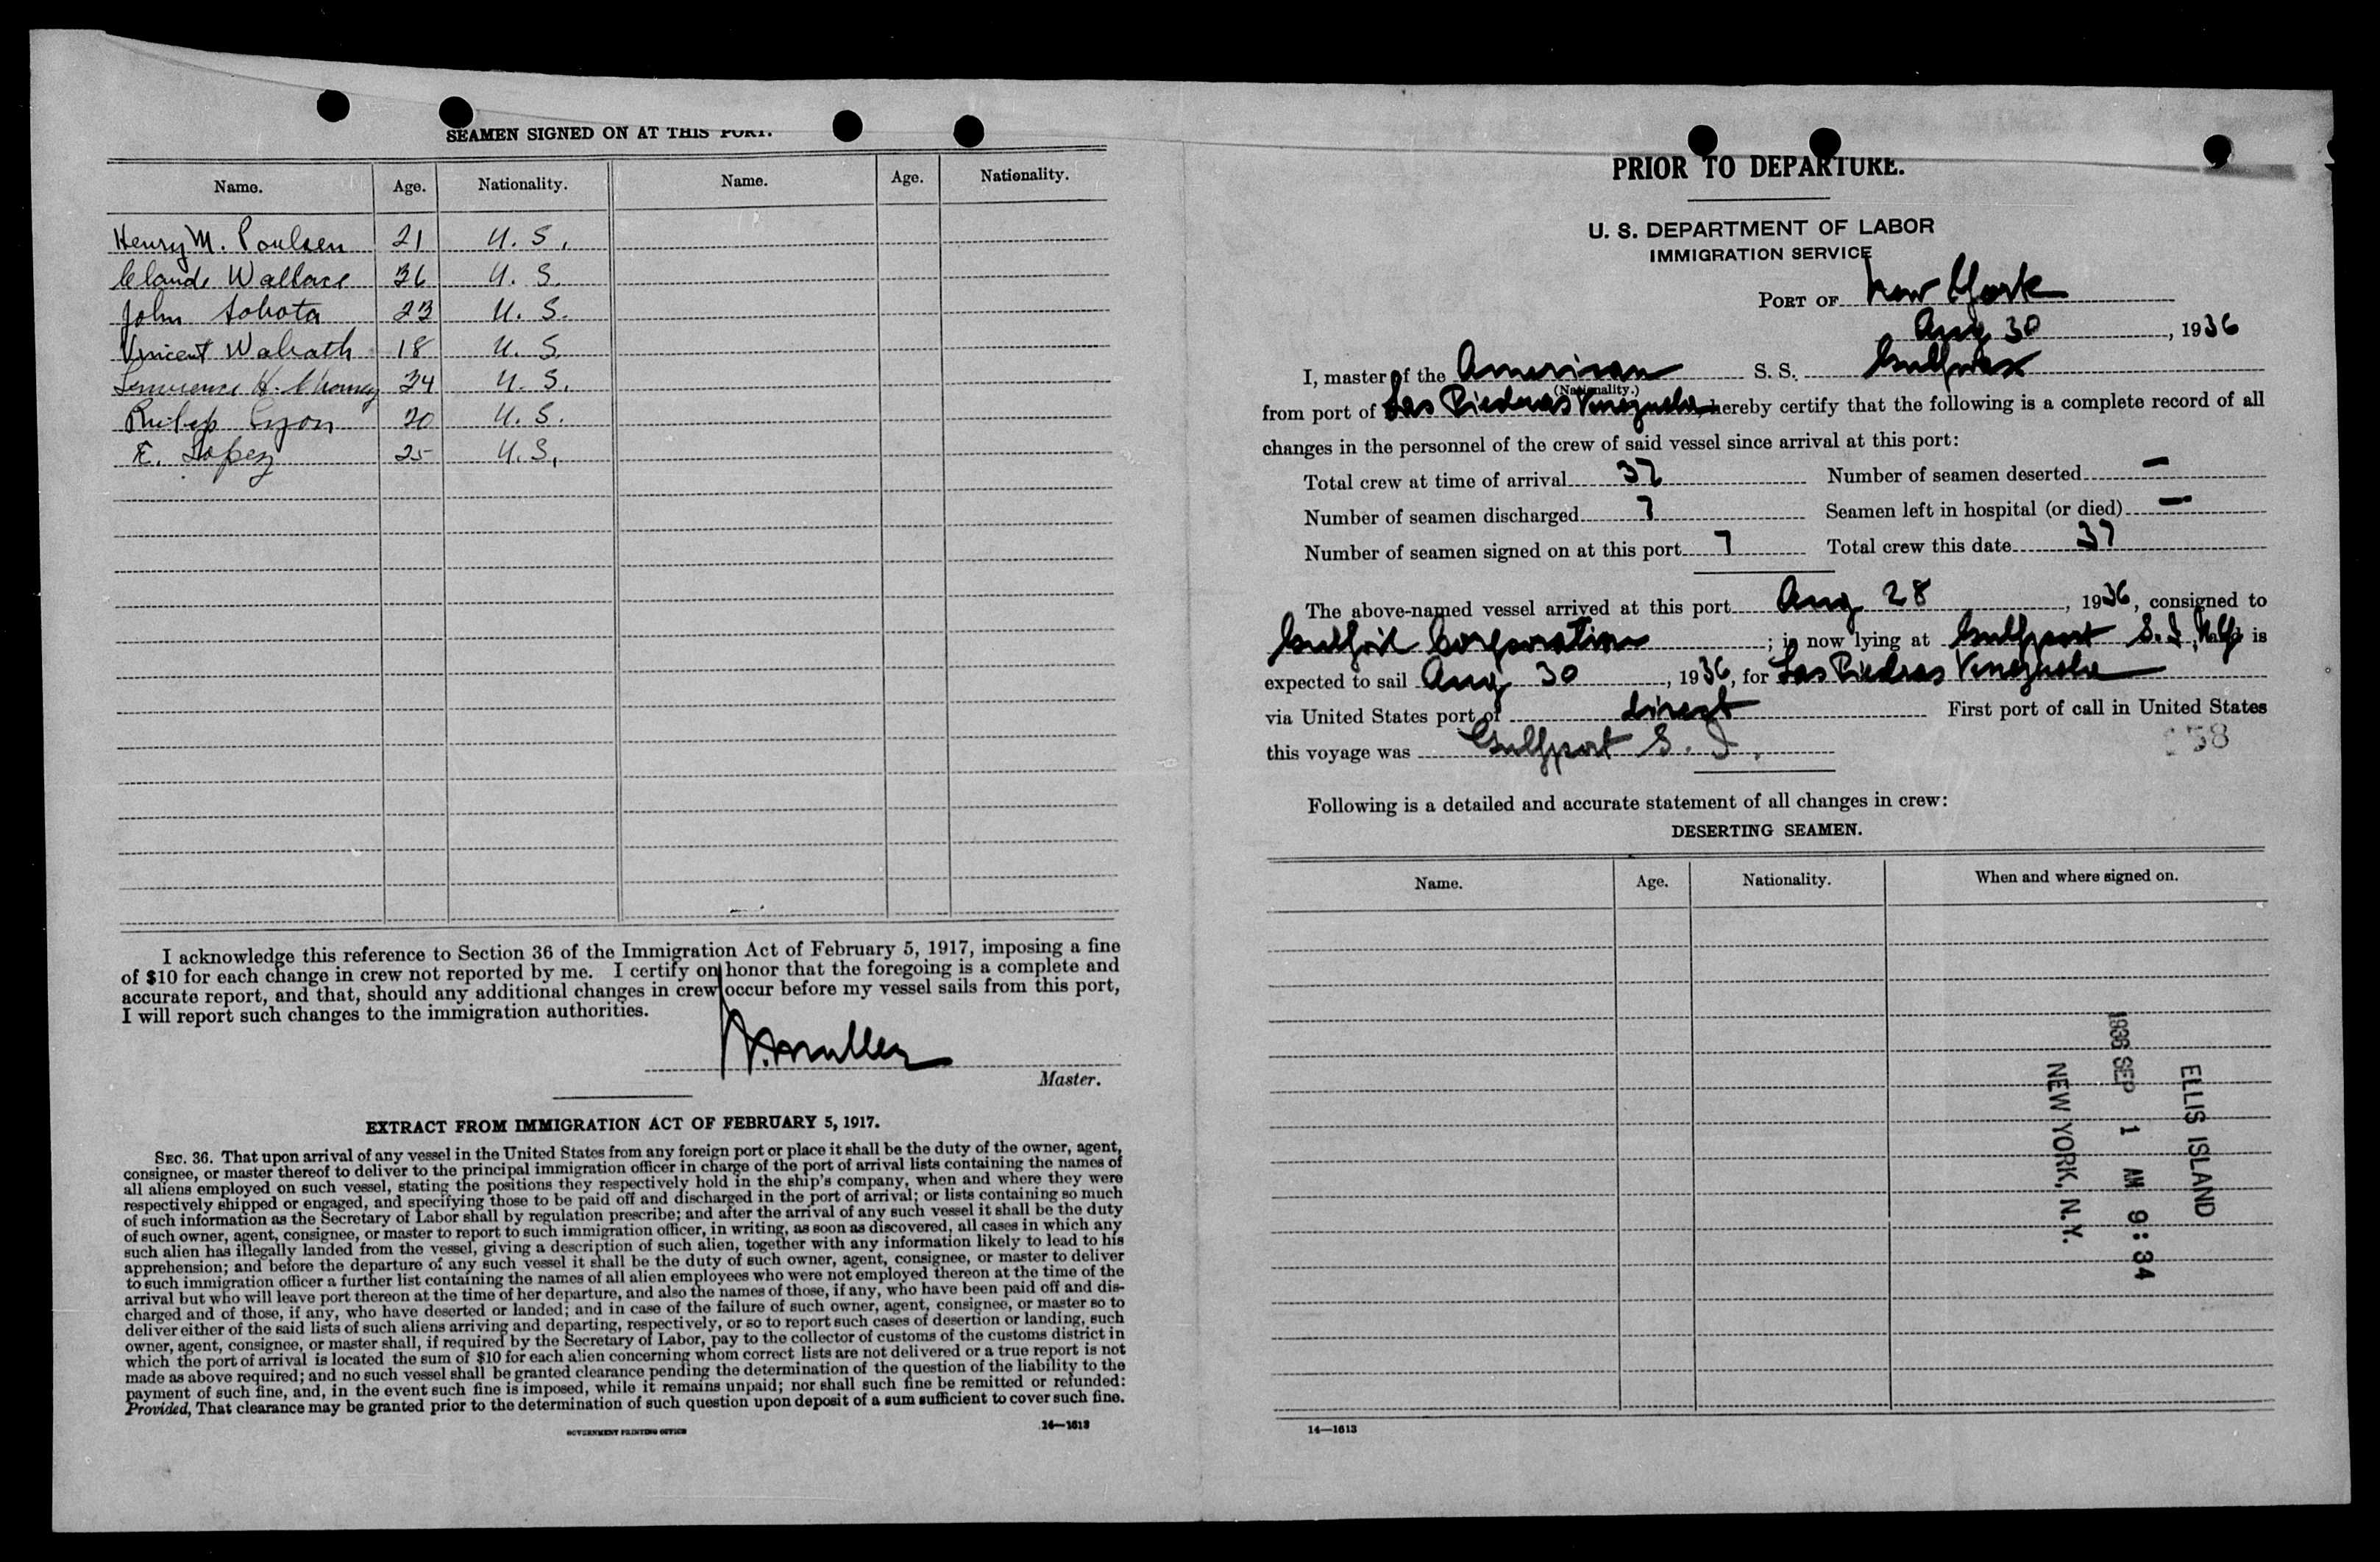 SEAMEN SIGNED ON AT THIS PORT.
Name. Age. Nationality. Name. Age. Nationality.
Henry M. Poulsen 21 U. S.
Claude Wallace 36 U. S.
John Sobota 23 U. S.
Vincent Walrath 18 U. S.
Lawrence H. 24 U. S.
Philip Lyon 20 U. S.
E. Lopez 25 U. S.
I acknowledge this reference to Section 36 of the Immigration Act of February 5, 1917, imposing a fine
of $10 for each change in crew not reported by me. I certify on honor that the foregoing is a complete and
accurate report, and that, should any additional changes in crew occur before my vessel sails from this port,
I will report such changes to the immigration authorities.
Muller
Master.
EXTRACT FROM IMMIGRATION ACT OF FEBRUARY 5, 1917.
SEC. 36. That upon arrival of any vessel in the United States from any foreign port or place it shall be the duty of the owner, agent,
consignee, or master thereof to deliver to the principal immigration officer in charge of the port of arrival lists containing the names of
all aliens employed on such vessel, stating the positions they respectively hold in the ship's company, when and where they were
respectively shipped or engaged, and specifying those to be paid off and discharged in the port of arrival; or lists containing so much
of such information as the Secretary of Labor shall by regulation prescribe; and after the arrival of any such vessel it shall be the duty
of such owner, agent, consignee, or master to report to such immigration officer, in writing, as soon as discovered, all cases in which any
such alien has illegally landed from the vessel, giving a description of such alien, together with any information likely to lead to his
apprehension; and before the departure of any such vessel it shall be the duty of such owner, agent, consignee, or master to deliver
to such immigration officer a further list containing the names of all alien employees who were not employed thereon at the time of the
arrival but who will leave port thereon at the time of her departure, and also the names of those, if any, who have been paid off and dis-
charged and of those, if any, who have deserted or landed; and in case of the failure of such owner, agent, consignee, or master so to
deliver either of the said lists of such aliens arriving and departing, respectively, or so to report such cases of desertion or landing, such
owner, agent, consignee, or master shall, if required by the Secretary of Labor, pay to the collector of customs of the customs district in
which the port of arrival is located the sum of $10 for each alien concerning whom correct lists are not delivered or a true report is not
made as above required; and no such vessel shall be granted clearance pending the determination of the question of the liability to the
payment of such fine, and, in the event such fine is imposed, while it remains unpaid; nor shall such fine be remitted or refunded:
Provided, That clearance may be granted prior to the determination of such question upon deposit of a sum sufficient to cover such fine.
GOVERNMENT PRINTING OFFICE 14—1613
PRIOR TO DEPARTURE.
U. S. DEPARTMENT OF LABOR
IMMIGRATION SERVICE
PORT OF New York
Aug 30, 1936
I, master of the American S. S. Gulfwax
(Nationality.)
from port of Las Piedras Venezuela hereby certify that the following is a complete record of all
changes in the personnel of the crew of said vessel since arrival at this port:
Total crew at time of arrival 37 Number of seamen deserted —
Number of seamen discharged 7 Seamen left in hospital (or died) —
Number of seamen signed on at this port 7 Total crew this date 37
The above-named vessel arrived at this port Aug 28, 1936, consigned to
Gulfoil Corporation; is now lying at Gulfport S. I., is
expected to sail Aug 30, 1936, for Las Piedras Venezuela
via United States port of direct First port of call in United States
this voyage was Gulfport S. I.
58
Following is a detailed and accurate statement of all changes in crew:
DESERTING SEAMEN.
Name. Age. Nationality. When and where signed on.
ELLIS ISLAND
1936 SEP 1 AM 9:34
NEW YORK, N.Y.
14—1613